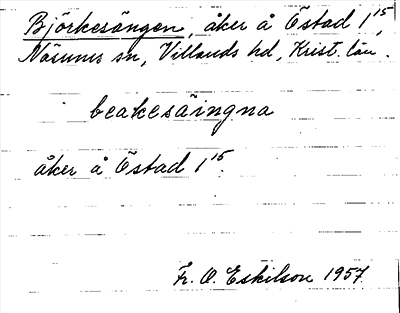 Björkesängen, åker å Östad 1¹⁵,
Näsums sn, Villands hd, Krist. län.
beakesäingna
åker å Östad 1¹⁵.
Fr. O. Eskilson 1957